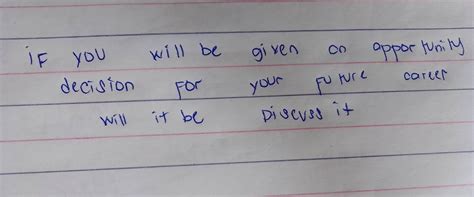 if you will be given on opportunity
decision for your future career
will it be Discuss it